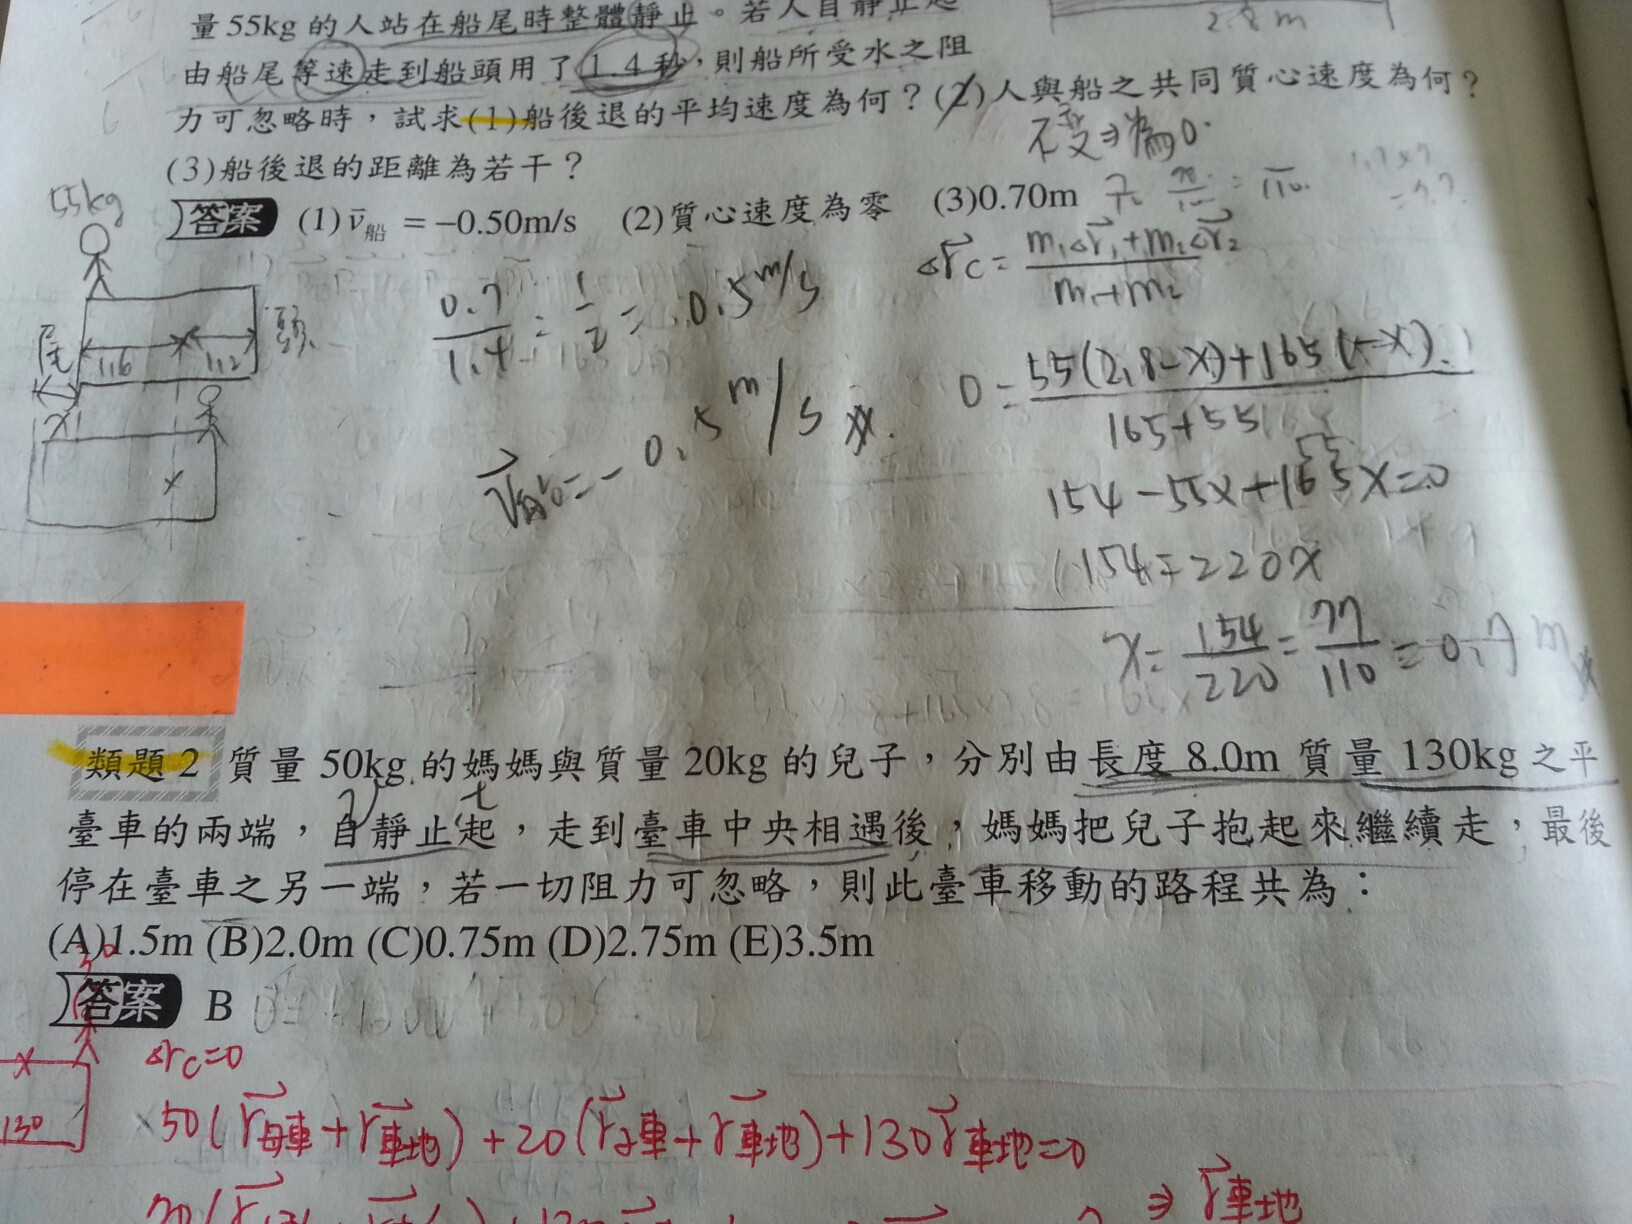 量55kg的人站在船尾時整體靜止。若人自靜止起
2.8m
由船尾等速走到船頭用了1.4秒，則船所受水之阻
力可忽略時，試求(1)船後退的平均速度為何？(2)人與船之共同質心速度為何？
不變⇒為0.
(3)船後退的距離為若干？
答案 (1) v̄船 = −0.50m/s (2)質心速度為零 (3)0.70m
55kg
尾
1.6
1.2
頭
x
0.7/1.4 = 1/2 = 0.5 m/s
v⃗船 = -0.5 m/s
Δr⃗c = (m₁Δr⃗₁+m₂Δr⃗₂)/(m₁+m₂)
0 = (55(2.8-x)+165(-x))/(165+55)
154=220x
x = 154/220 = 77/110 = 0.7 m
類題2 質量50kg的媽媽與質量20kg的兒子，分別由長度8.0m質量130kg之平
臺車的兩端，自靜止起，走到臺車中央相遇後，媽媽把兒子抱起來繼續走，最後
停在臺車之另一端，若一切阻力可忽略，則此臺車移動的路程共為：
(A)1.5m (B)2.0m (C)0.75m (D)2.75m (E)3.5m
答案 B
Δrc=0
130
50(r⃗母車+r⃗車地)+20(r⃗子車+r⃗車地)+130r⃗車地=0
⇒ r⃗車地